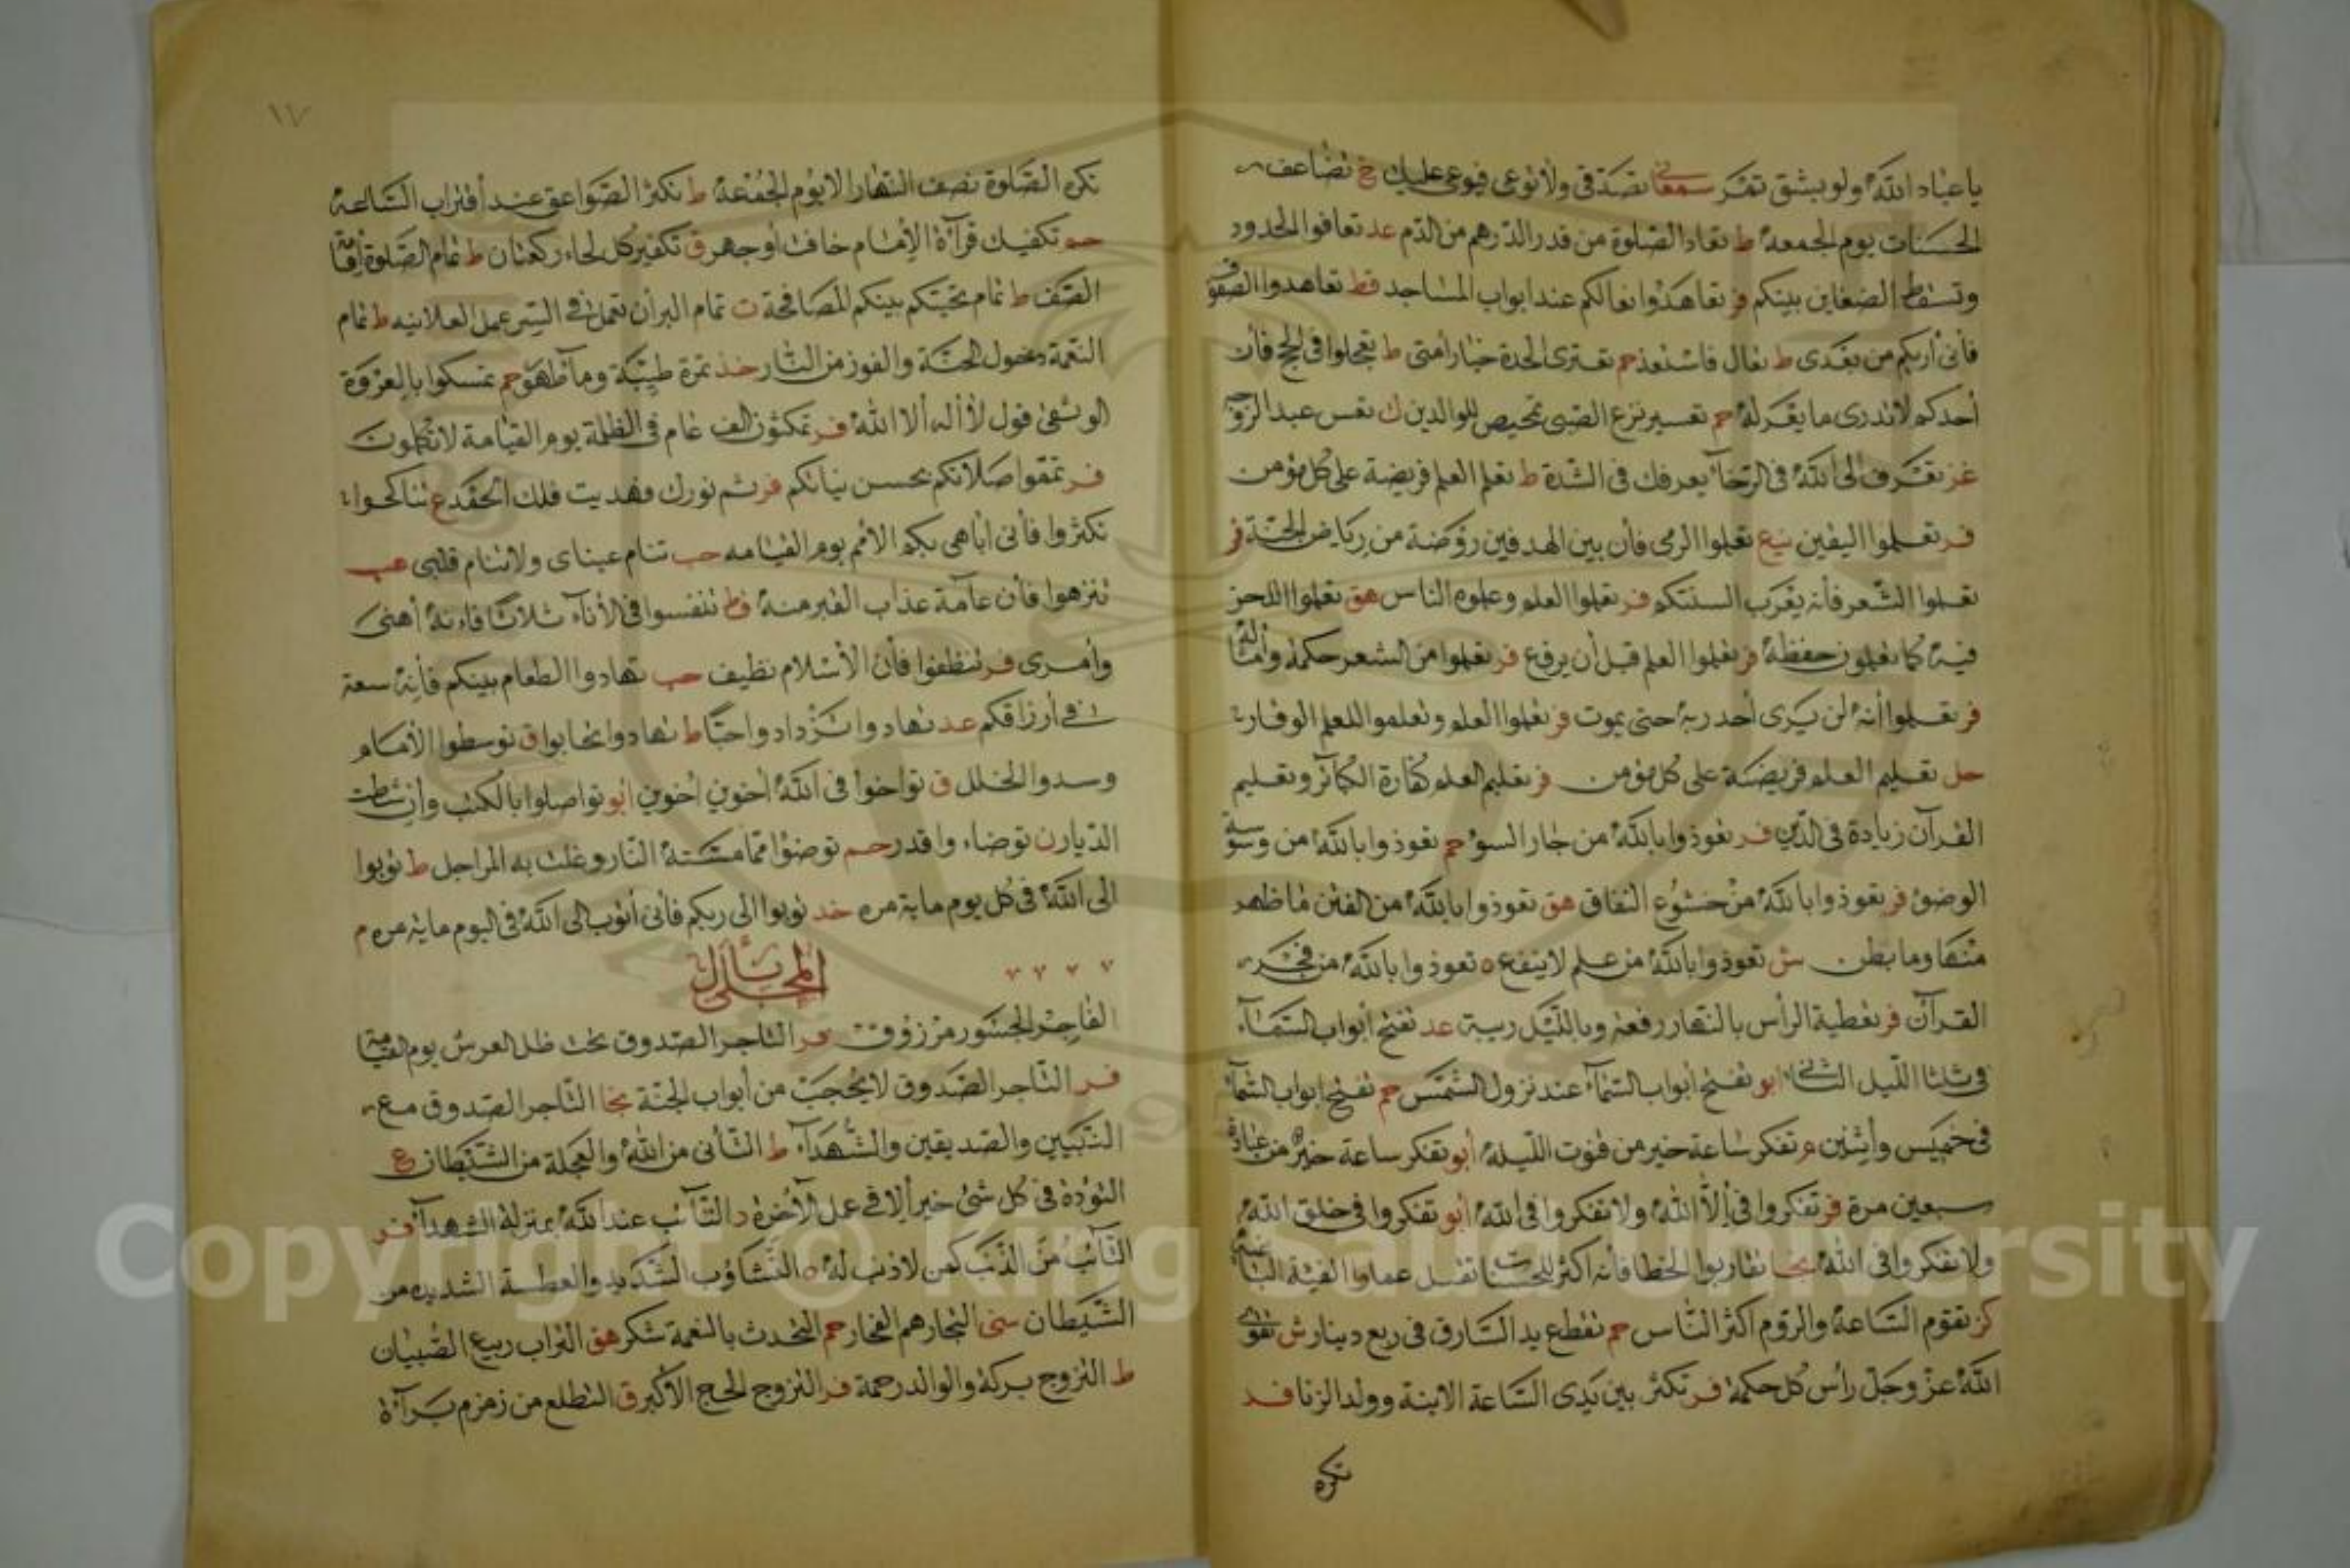 يا عباد الله ولو بشق تمر سمعاني تصدقي ولا توعي فيوعي عليك خ تضاعف
الحسنات يوم الجمعة ط تعاد الصلوة من قدر الدرهم من الدم عد تعافوا الحدود
وتسقط الضغاين بينكم فر تعاهدوا نعالكم عند ابواب المساجد قط تعاهدوا الصفوف
فأني أريكم من بعدي ط تعال فاستعذ حم تعتري الحدة خيار أمتي ط تعجلوا في الحج فأن
أحدكم لا تدري ما يعرله حم تعسير نزع الصبي تمحيص للوالدين ك تعس عبد الزوجة
غز تعرف إلى الله في الرخاء يعرفك في الشدة ط تعلم العلم فريضة على كل مؤمن
فر تعلموا اليقين نيع تعلموا الرمى فأن بين الهدفين روضة من رياض الجنة فر
تعلموا الشعر فأنه يعرب السنتكم فر تعلموا العلم وعلموه الناس هق تعلموا اللحن
فيه كما تعلمون حفظه فر تعلموا العلم قبل أن يرفع فر تعلموا من الشعر حكمة وأمثاله
فر تعلموا أنه لن يرى أحد ربه حتى يموت فر تعلموا العلم وتعلموا للعلم الوقار
حل تعليم العلم فريضة على كل مؤمن فر تعليم العلم كفارة الكبائر وتعليم
القرآن زيادة في الدين فر تعوذوا بالله من جار السوء حم تعوذوا بالله من وسوسة
الوضوء فر تعوذوا بالله من خشوع النفاق هق تعوذوا بالله من الفتن ما ظهر
منها وما بطن ش تعوذوا بالله من علم لا ينفع ه تعوذوا بالله من فخر
القرآن فر تغطية الرأس بالنهار رفعة وبالليل ريبة عد تفتح أبواب السماء
في ثلثا الليل الثاني ابو تفتح أبواب السماء عند نزول الشمس حم تفتح ابواب السماء
في خميس وأثنين م تفكر ساعة خير من قنوت الليلة أبو تفكر ساعة خير من عبادة
سبعين مرة فر تفكروا في إلا الله ولا تفكروا في الله أبو تفكروا في خلق الله
ولا تفكروا في الله نجا تقاربوا الخطا فأنه اكثر للحسنات تقتل عمارا الفئة الباغية
كز تقوم الساعة والروم اكثر الناس حم تقطع يد السارق في ربع دينار ش تقوى
الله عز وجل رأس كل حكمة فر تكثر بين يدي الساعة الابنة وولد الزنا قد
تكره
١٧
تكره الصلوة نصف النهار الا يوم الجمعة ط تكثر الصواعق عند أقتراب الساعة
حم تكفيك قرآءة الإمام خافت أو جهر ق تكفير كل لحاء ركعتان ط تمام الصلوة إقامة
الصف ط تمام تحيتكم بينكم المصافحة ت تمام البر أن تعمل في السر عمل العلانيه ط تمام
النعمة دخول الجنة والفوز من النار خد تمرة طيبة وماء طهور حم تمسكوا بالعروة
الوثقى قول لا أله ألا الله فر تمكثون الف عام في الظلمة يوم القيامة لا تكلمون
فر نمقوا صلاتكم بحسن نياتكم فر تم نورك فهديت فلك الحمد ع تناكحوا
تكثروا فأني أباهي بكم الأمم يوم القيامه حب تنام عيناي ولا تنام قلبي عب
تنزهوا فأن عامة عذاب القبر منه قط تنفسوا في الأناء ثلاثا فإنه أهنى
وأمرى فر تنظفوا فأن الأسلام نظيف حب تهادوا الطعام بينكم فأنه سعة
في أرزاقكم عد تهادوا تزدادوا حبا ط تهادوا تحابوا ق توسطوا الأمام
وسدوا الخلل ق تواخوا في الله أخوين أخوين أبو تواصلوا بالكتب وأن شطت
الديار ن توضاء واقد رحم توضؤا مما مسته النار وغلت به المراجل ط توبوا
الى الله في كل يوم ماية مره خد توبوا الى ربكم فأني أتوب الى الله في اليوم ماية مره م
المحلى بأل
الفاجر الجسور مرزوق فر التاجر الصدوق تحت ظل العرش يوم القيامة
فر التاجر الصدوق لا يحجب من أبواب الجنة نجا التاجر الصدوق مع
النبيين والصديقين والشهدآء ط التأني من الله والعجلة من الشيطان ع
التؤدة في كل شئ خير ألا في عمل الآخرة د التآئب عند الله بمنزلة الشهدآء فر
التآئب من الذنب كمن لا ذنب له ه التثاؤب الشديد والعطسة الشديده من
الشيطان سنى التجار هم الفجار حم التحدث بالنعمة شكر هق التراب ربيع الصبيان
ط التزوج بركة والوالد رحمة فر التزوج الحج الأكبر ق التطلع من زمزم برآءة
Copyright © King Saud University
1957